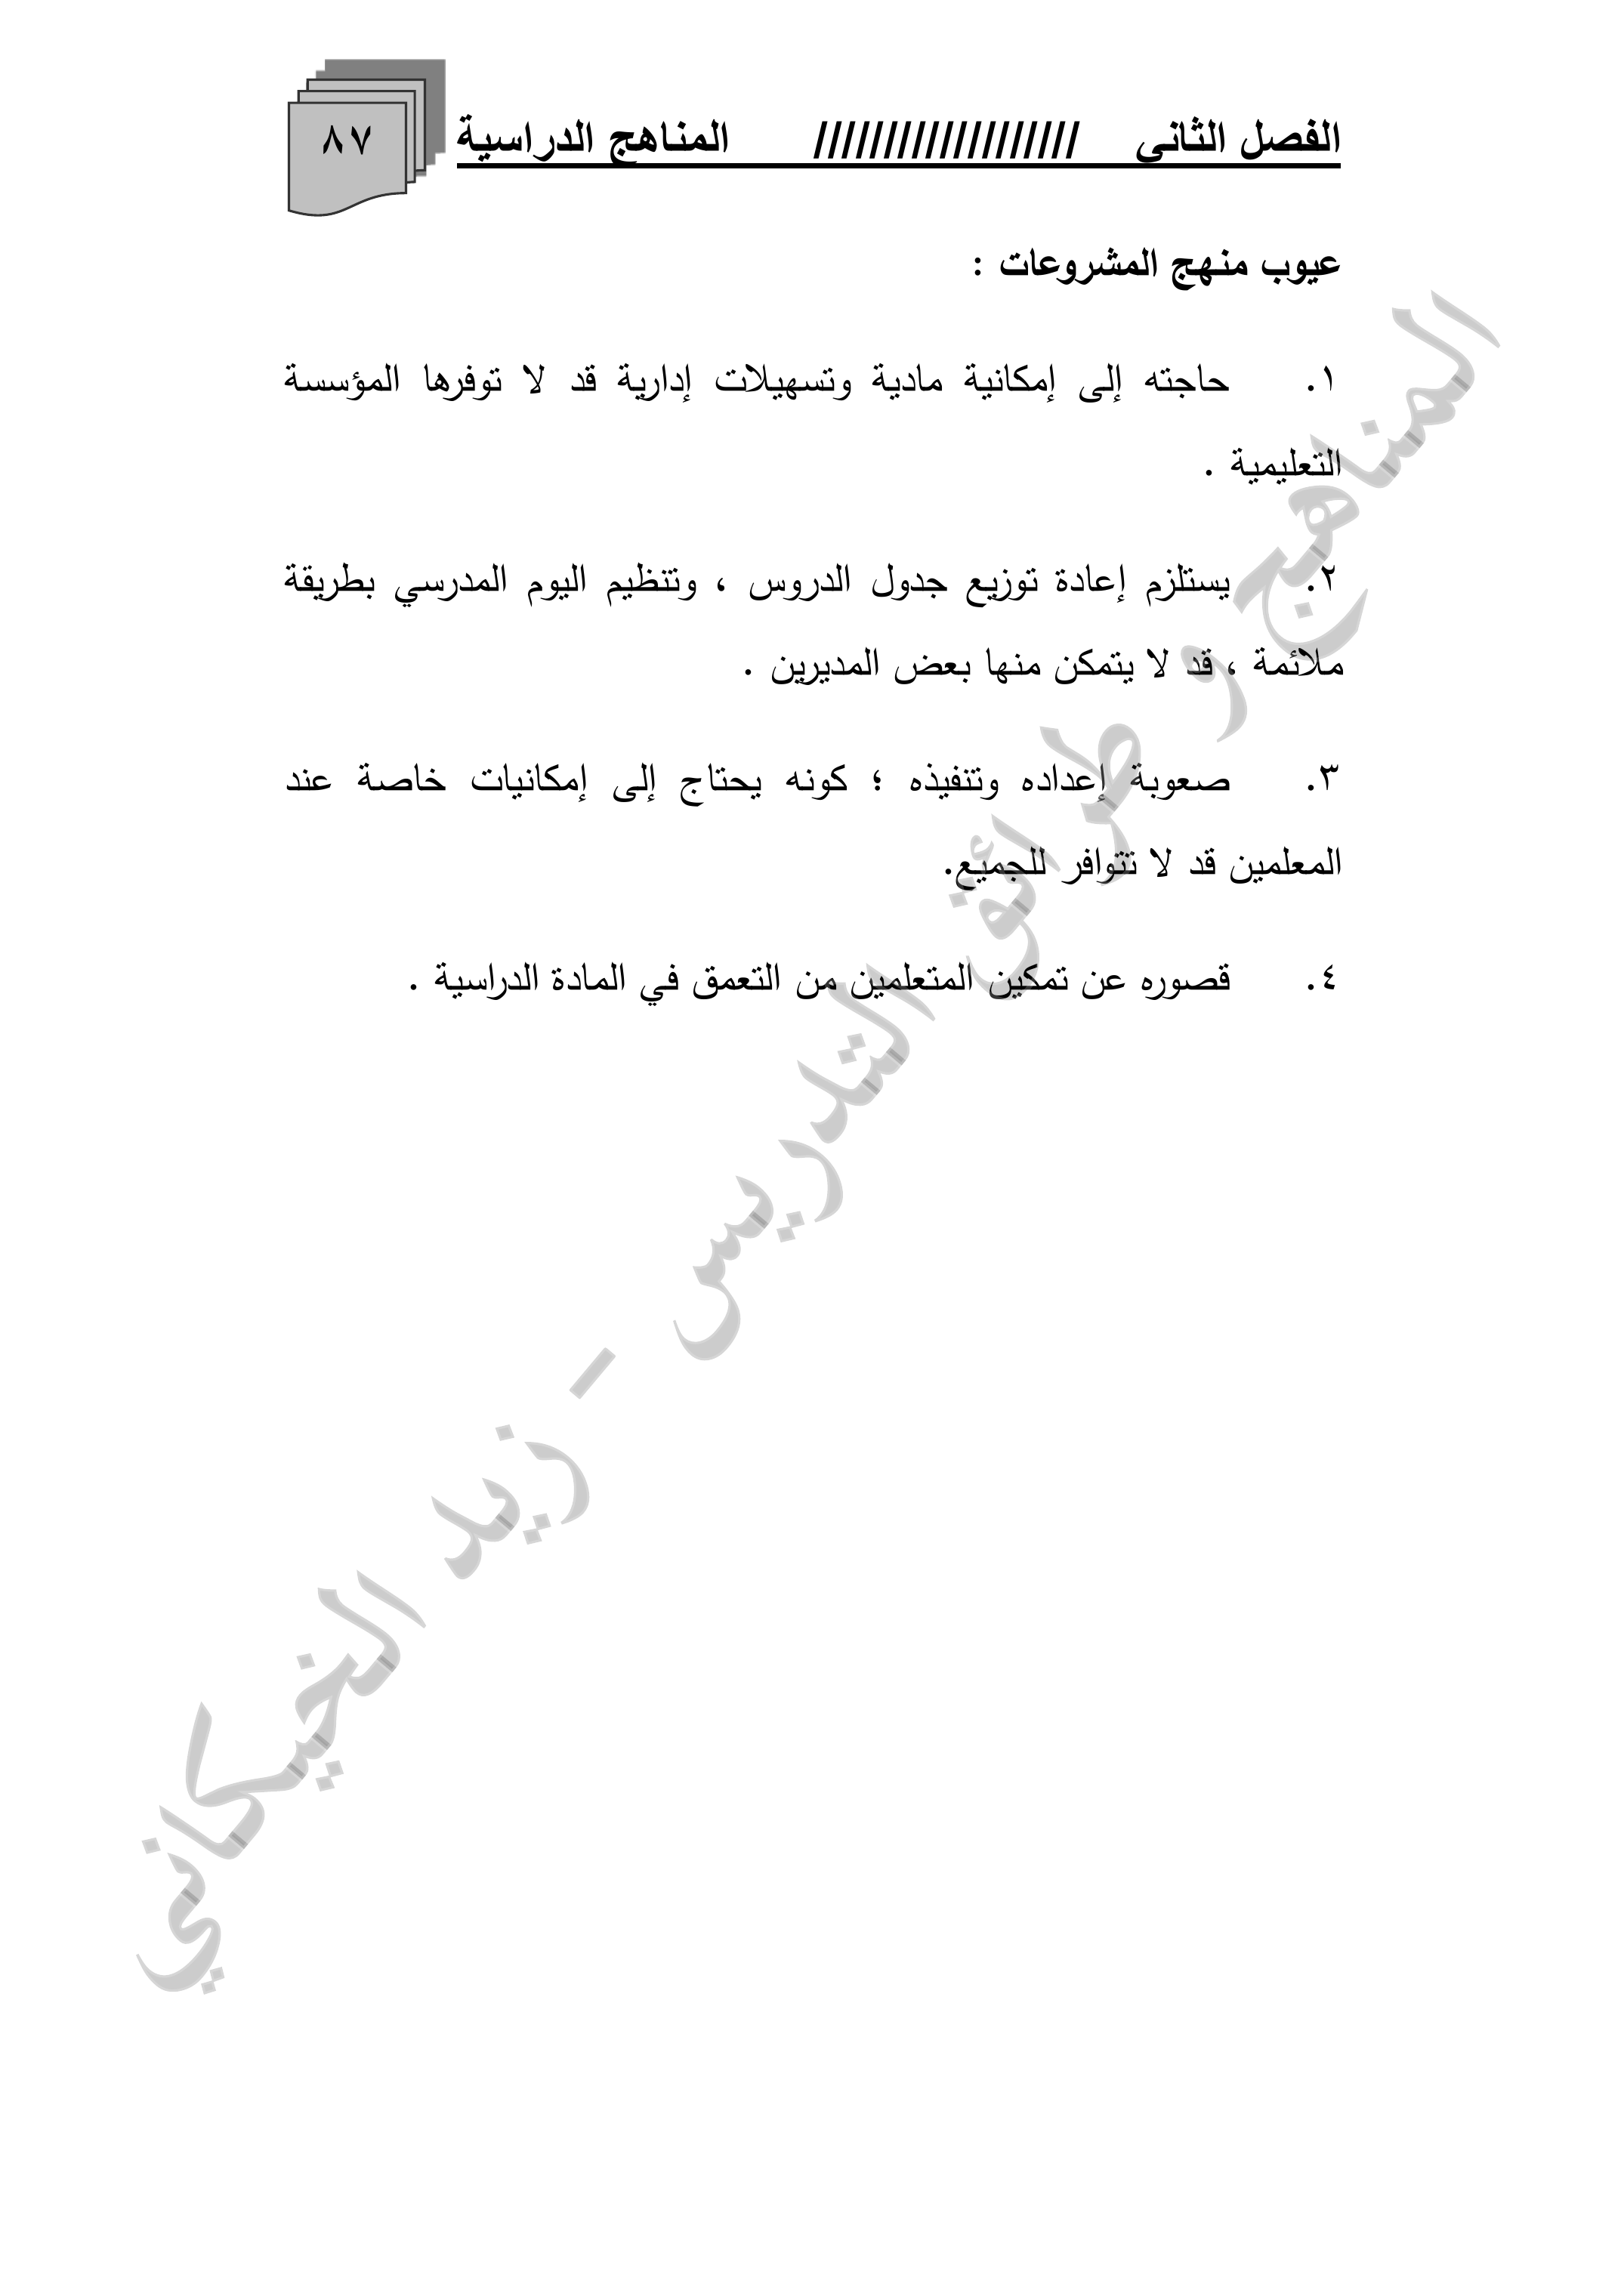 الفصل الثاني /////////////////// المناهج الدراسية
٨٧
عيوب منهج المشروعات :
١. حاجته إلى إمكانية مادية وتسهيلات إدارية قد لا توفرها المؤسسة
التعليمية .
٢. يستلزم إعادة توزيع جدول الدروس ، وتنظيم اليوم المدرسي بطريقة
ملائمة ، قد لا يتمكن منها بعض المديرين .
٣. صعوبة إعداده وتنفيذه ؛ كونه يحتاج إلى إمكانيات خاصة عند
المعلمين قد لا تتوافر للجميع.
٤. قصوره عن تمكين المتعلمين من التعمق في المادة الدراسية .
المناهج و طرائق التدريس - زيد الخيكاني